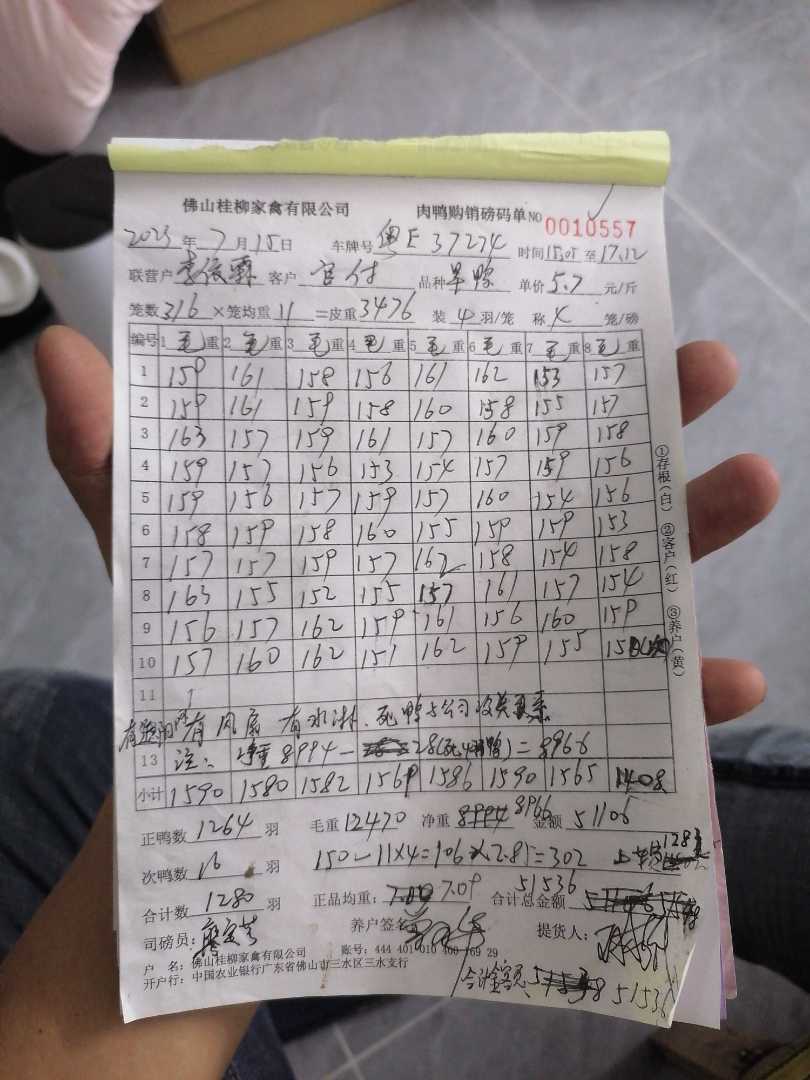 佛山桂柳家禽有限公司 肉鸭购销磅码单 NO 0010557
2023年7月15日 车牌号 粤E37274 时间15.05至17.12
联营户 客户 官付 品种 旱鸭 单价5.7元/斤
笼数316×笼均重11=皮重3476 装4羽/笼 称4笼/磅
编号 1毛重 2毛重 3毛重 4毛重 5毛重 6毛重 7毛重 8毛重
1 159 161 158 156 161 162 153 157
2 159 161 159 158 160 158 155 157
3 163 157 159 161 157 160 159 158
4 159 157 156 153 154 157 159 156
5 159 156 157 159 157 160 154 156
6 158 159 158 160 155 159 159 153
7 157 157 159 157 162 158 154 158
8 163 155 152 155 157 161 157 154
9 156 157 162 159 161 156 160 159
10 157 160 162 151 162 159 155
11
有风扇 有水淋、死鸭与公司没关系
13 注:净重8994- 28(死4只鸭)=8966
小计 1590 1580 1582 1569 1586 1590 1565 1408
正鸭数1264羽 毛重12470 净重8994 8966 金额51106
次鸭数16羽 150-11×4=106×2.85=302
合计数1280羽 正品均重:7.09 合计总金额 51536
司磅员: 养户签名 提货人:
户 名:佛山桂柳家禽有限公司 账号:444 401 010 400 169 29
开户行:中国农业银行广东省佛山市三水区三水支行
合计金额 51536
①存根(白) ②客户(红) ③养户(黄)